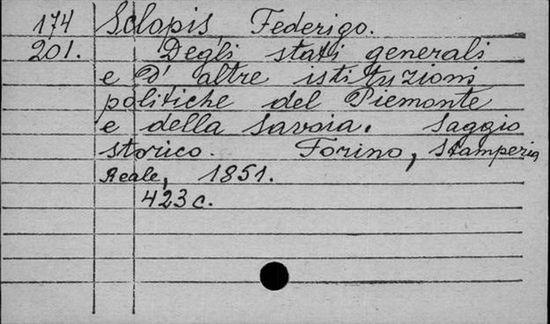 174 Sclopis, Federigo.
201. Degli stati generali
e D' altre istituzioni
politiche del Piemonte
e della Savoia. Saggio
storico. Torino, Stamperia
Reale, 1851.
423 c.